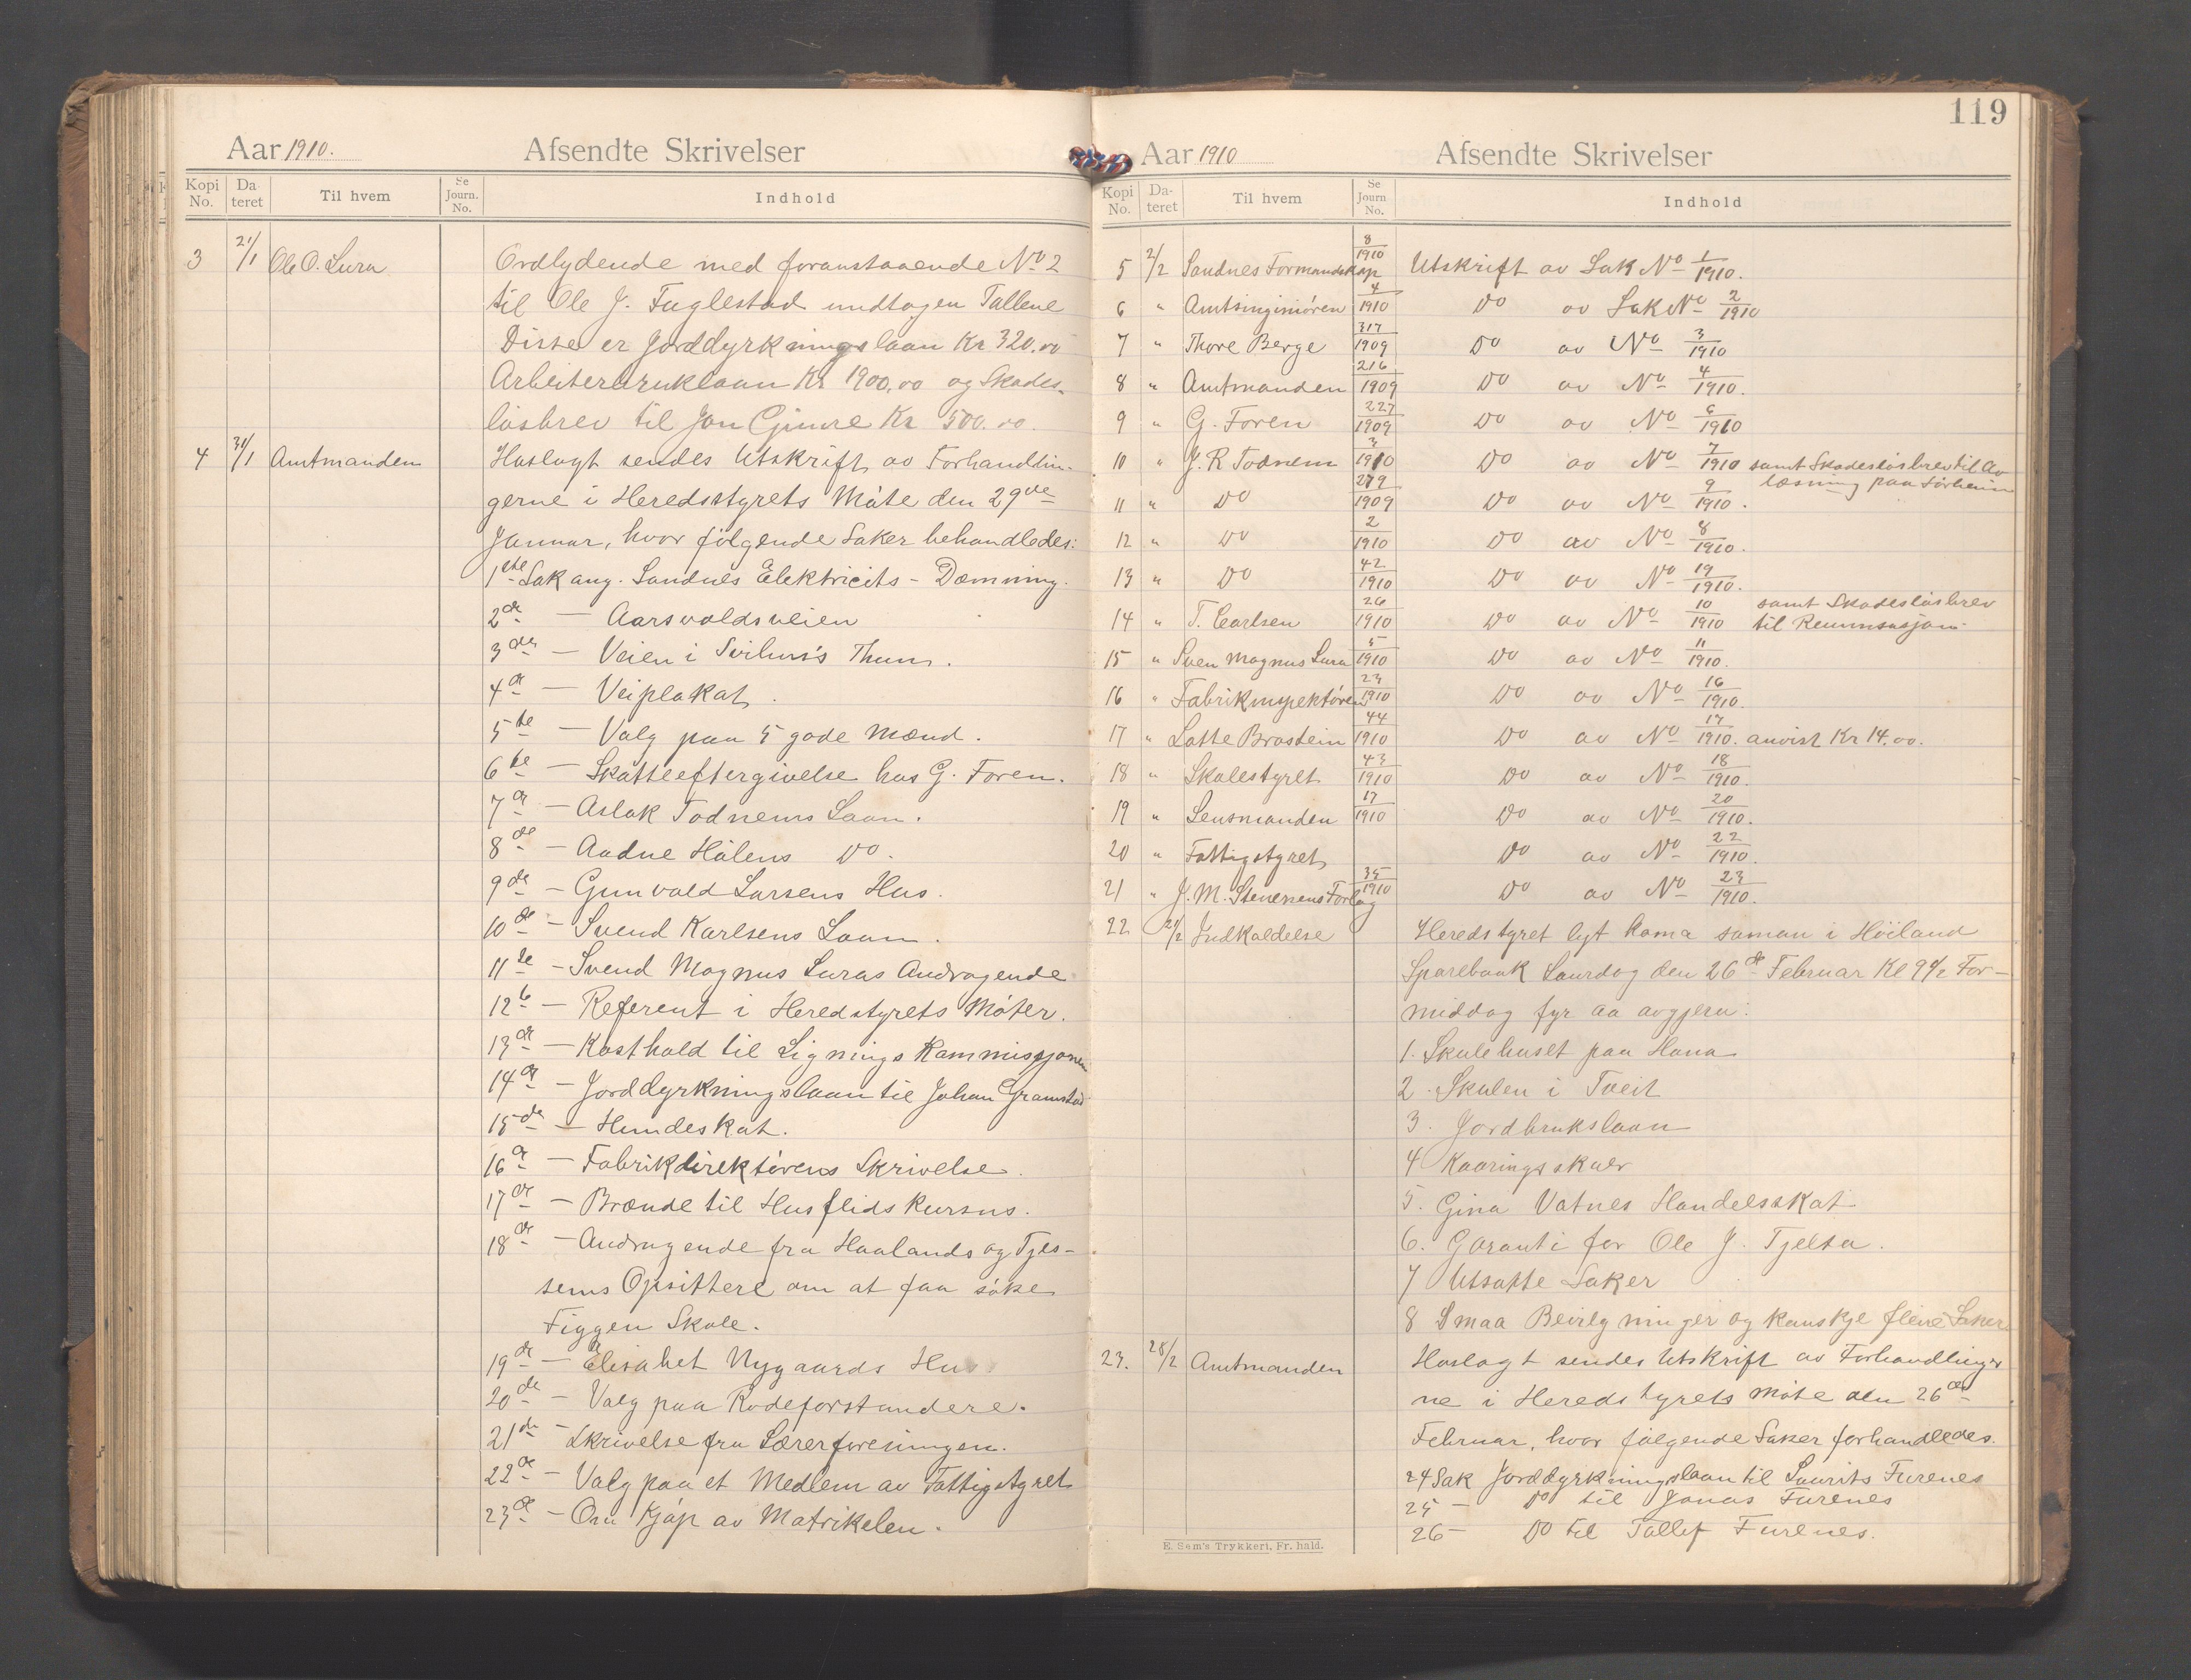 Aar 1910. Afsendte Skrivelser
Kopi No. Da teret Til hvem Se Journ. No. Indhold
3 21/1 Ole O. Lura Ordlydende med foranstaaende No 2
til Ole J. Fuglestad undtagen Tallene
Disse er Jorddyrkningslaan Kr 320.00
Arbeiterbruklaan Kr 1900,00 og Skades-
løsbrev til Jon Gimre Kr 500.00.
4 31/1 Amtmanden Hoslagt sendes Utskrift av Forhandlin-
gerne i Heredsstyrets Møte den 29de
Januar, hvor følgende Saker behandledes:
1ste Sak ang. Sandnes Elektricits-Dæmning.
2de — Aarsvoldsveien
3de — Veien i Thum.
4de — Veiplakat.
5te — Valg paa 5 gode Mænd.
6te — Skatteeftergivelse hos G. Foren.
7de — Aslak Todnems Laan.
8de — Aadne Hålens Do.
9de — Gunvald Larsens Hus.
10de — Svend Karlsens Laan.
11te — Svend Magnus Luras Andragende
12te — Referent i Heredstyrets Møter.
13de — Kosthold til Lignings Kommissjonen
14de — Jorddyrkningslaan til Johan Gramstad
15de — Hundeskat.
16de — Fabrikdirektørens Skrivelse.
17de — Brænde til Husflids Kursus.
18de — Andragende fra Haalands og Tjes-
sems Opsittere om at faa søke
Figgen Skole.
19de — Elisabet Nygaards Hus
20de — Valg paa Rodeforstandere.
21de — Skrivelse fra Lærerforeningen.
22de — Valg paa et Medlem av Fattigstyret
23de — Om Kjøp av Matrikelen.
119
Aar 1910 Afsendte Skrivelser
Kopi No. Da-teret Til hvem Se Journ No. Indhold
5 2/2 Sandnes Formandskap 8/1910 Utskrift av Sak No 1/1910.
6 " Amtsinginiøren 4/1910 Do av Sak No 2/1910
7 " Thore Berge 317/1909 Do av No 3/1910
8 " Amtmanden 216/1909 Do av No 4/1910.
9 " G. Foren 227/1909 Do av No 6/1910
10 " J. R Todnem 3/1910 Do av No 7/1910 samt Skadesløsbrev til Av
læsning paa Sørheim
11 " Do 279/1909 Do av No 9/1910.
12 " Do 2/1910 Do av No 8/1910.
13 " Do 42/1910 Do av No 19/1910.
14 " T. Carlsen 26/1910 Do av No 10/1910 samt Skadesløsbrev
til
15 " Sven Magnus Lura 5/1910 Do av No 11/1910.
16 " Fabrikinspektøren 23/1910 Do av No 16/1910.
17 " Lotte Brostein 44/1910 Do av No 17/1910. anvist Kr 14.00.
18 " Skolestyret 43/1910 Do av No 18/1910.
19 " Lensmanden 17/1910 Do av No 20/1910.
20 " Fattigstyret Do av No 22/1910.
21 " J. M. Stenersens Forlag 35/1910 Do av No 23/1910.
22 21/2 Indkaldelse Heredstyret lyt koma saman i Höiland
Sparebank Laurdag den 26de Februar Kl 9 1/2 For-
middag fyr aa avgjera:
1. Skulehuset paa Hana
2. Skulen i Tveit
3. Jordbrukslaan
4 Kaaringsskuer
5. Gina Vatnes Handelsskat
6. Garanti for Ole J. Tjelta.
7 Utsatte Saker
8 Smaa Bevilgninger og kanskje fleire Saker
23. 28/2 Amtmanden Hoslagt sendes Utskrift av Forhandlinger
ne i Heredstyrets Møte den 26de
Februar, hvor følgende Saker forhandledes.
24 Sak Jorddyrkningslaan til Laurits Furenes
25 — Do til Jonas Furenes
26 — Do til Tollef Furenes.
E. Sem's Trykkeri, Fr. hald.